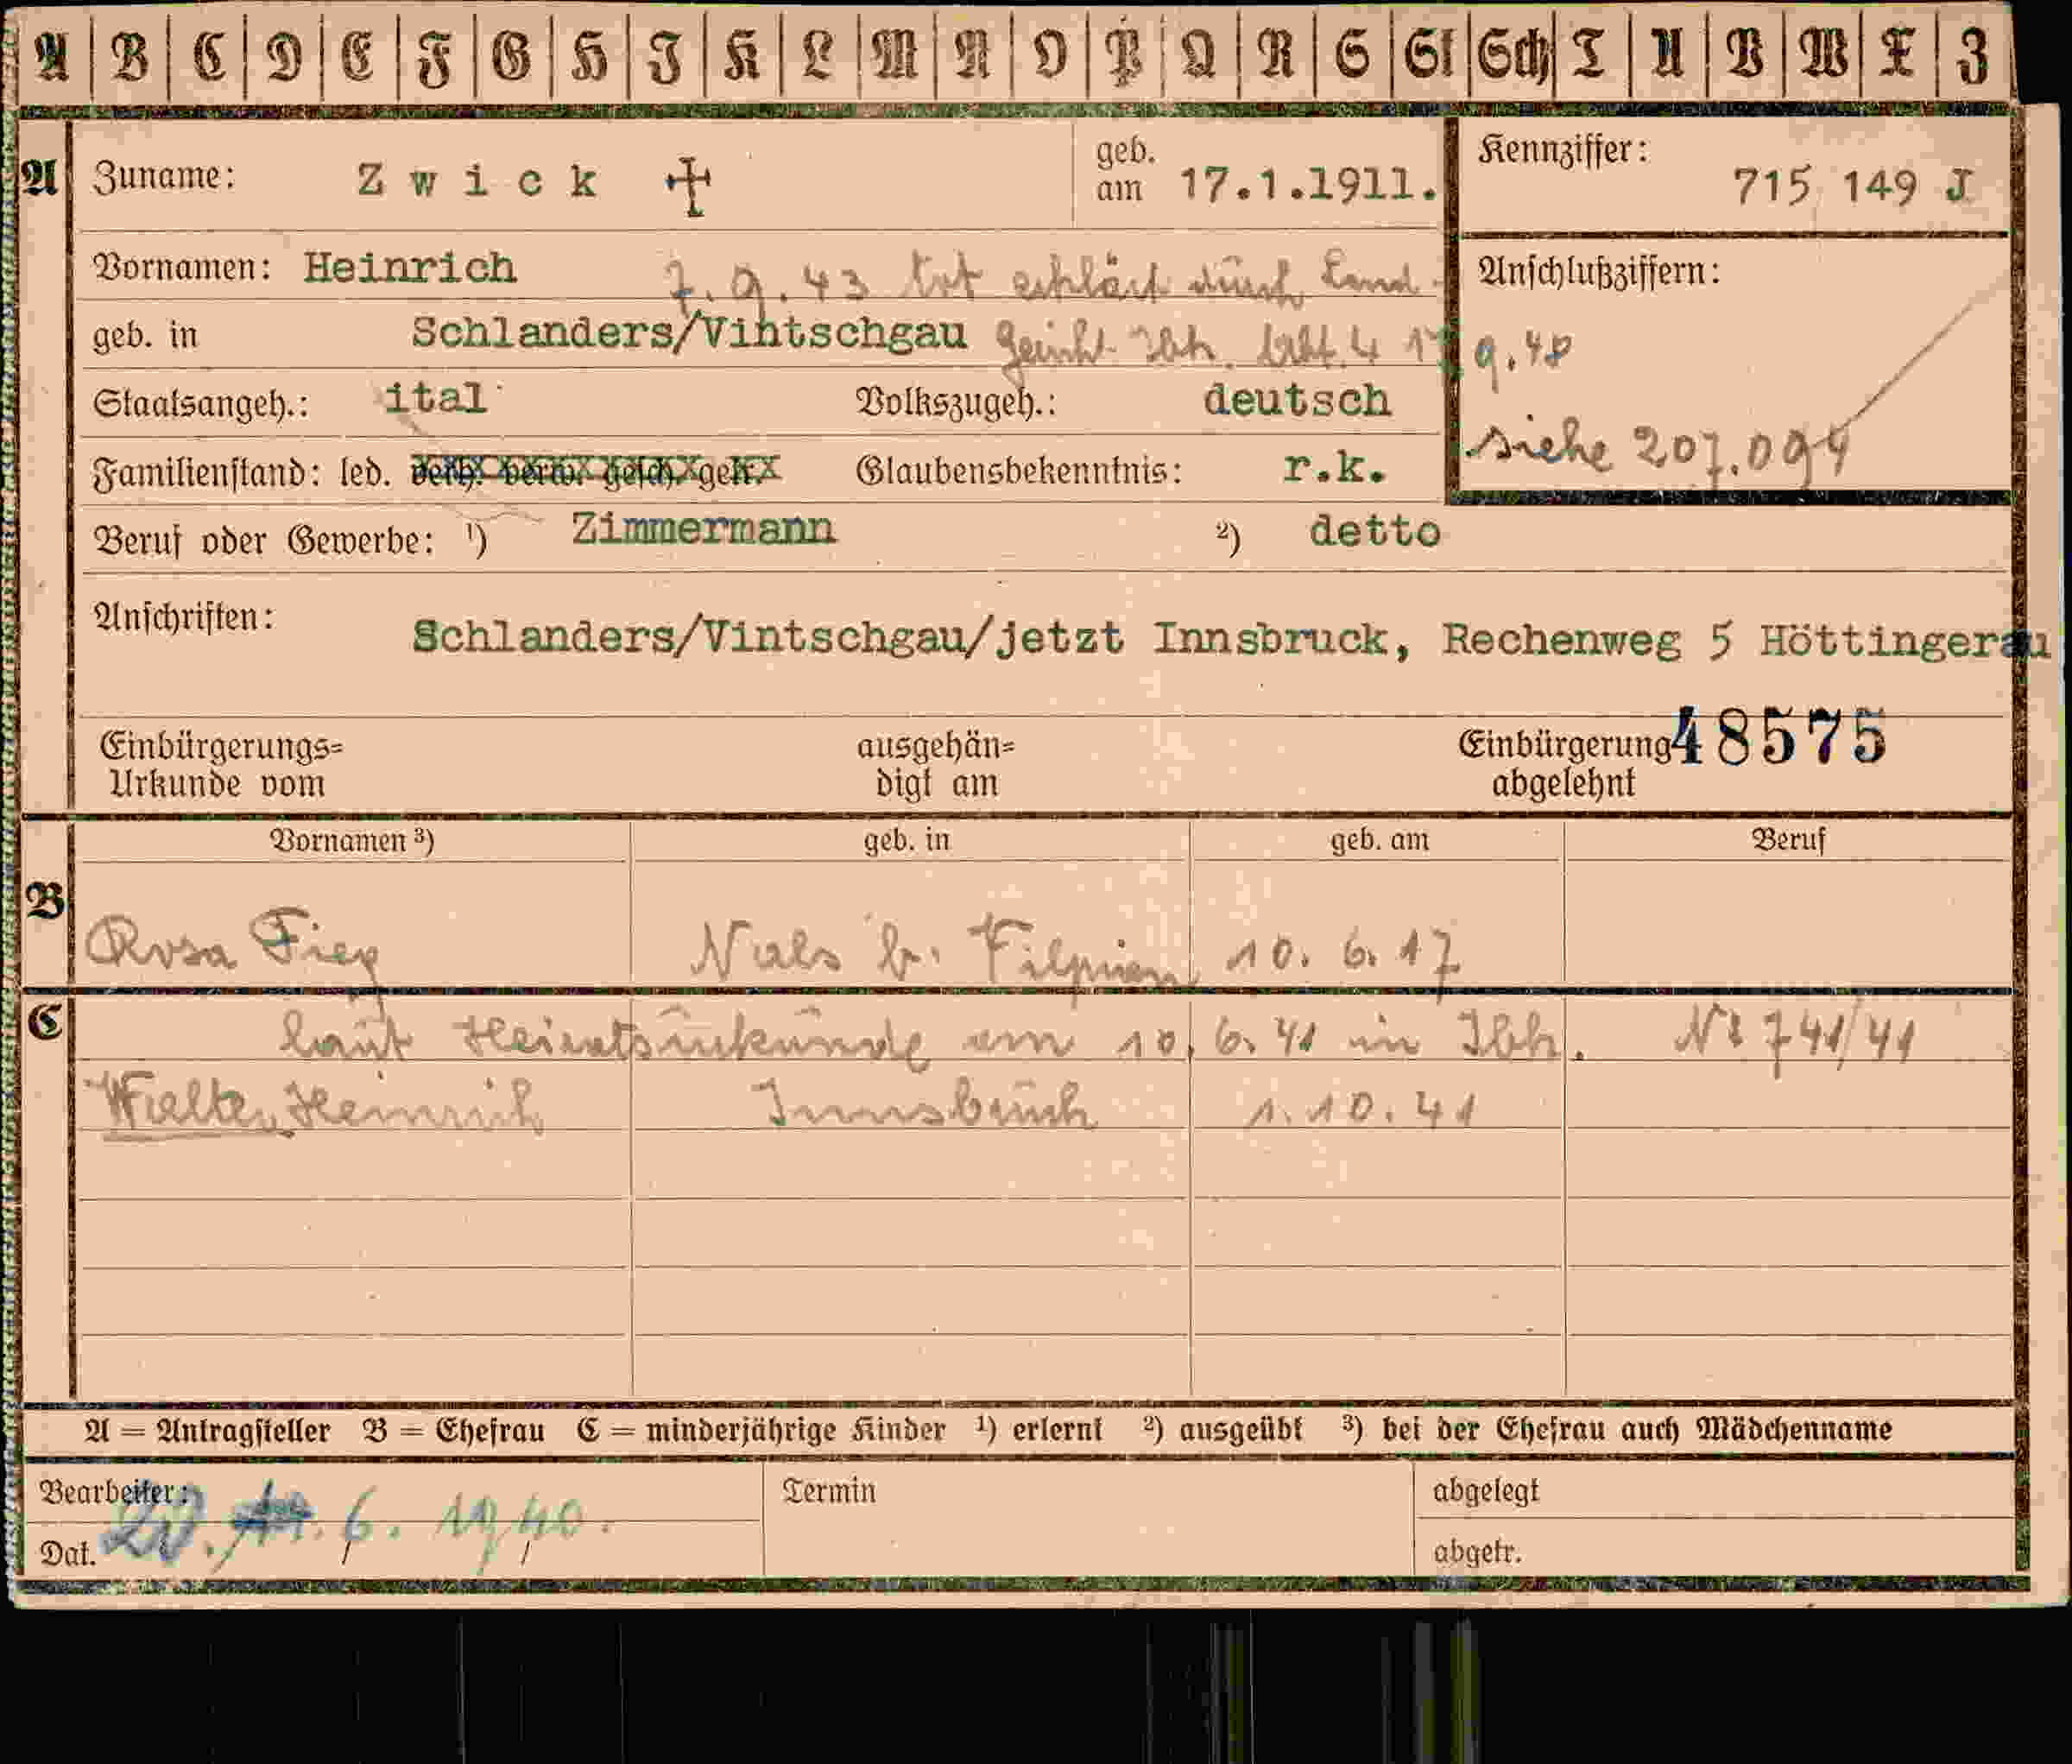 A B C D E F G H I K L M N O P Q R S St Sch T U V W X Z
A Zuname: Zwick geb. am 17.1.1911. Kennziffer: 715 149 J
Vornamen: Heinrich 7.9.43 tot erklärt durch Land- Anschlußziffern:
geb. in Schlanders/Vintschgau Gericht Ibk. 9.48
Staatsangeh.: ital Volkszugeh.: deutsch
siehe 207.094
Familienstand: led. verh. verw. gesch. getr. Glaubensbekenntnis: r.k.
Beruf oder Gewerbe: ¹) Zimmermann ²) detto
Anschriften: Schlanders/Vintschgau/jetzt Innsbruck, Rechenweg 5 Höttingerau
Einbürgerungs= ausgehän= Einbürgerung 48575
Urkunde vom digt am abgelehnt
Vornamen ³) geb. in geb. am Beruf
B Rosa Nals b. 10. 6. 17
C laut Heiratsurkunde am 10. 6. 41 in Ibk. Nr 741/41
Walter Heinrich Innsbruck 1. 10. 41
A = Antragsteller B = Ehefrau C = minderjährige Kinder ¹) erlernt ²) ausgeübt ³) bei der Ehefrau auch Mädchenname
Bearbeiter: Termin abgelegt
20. 6. 1940.
Dat. abgetr.